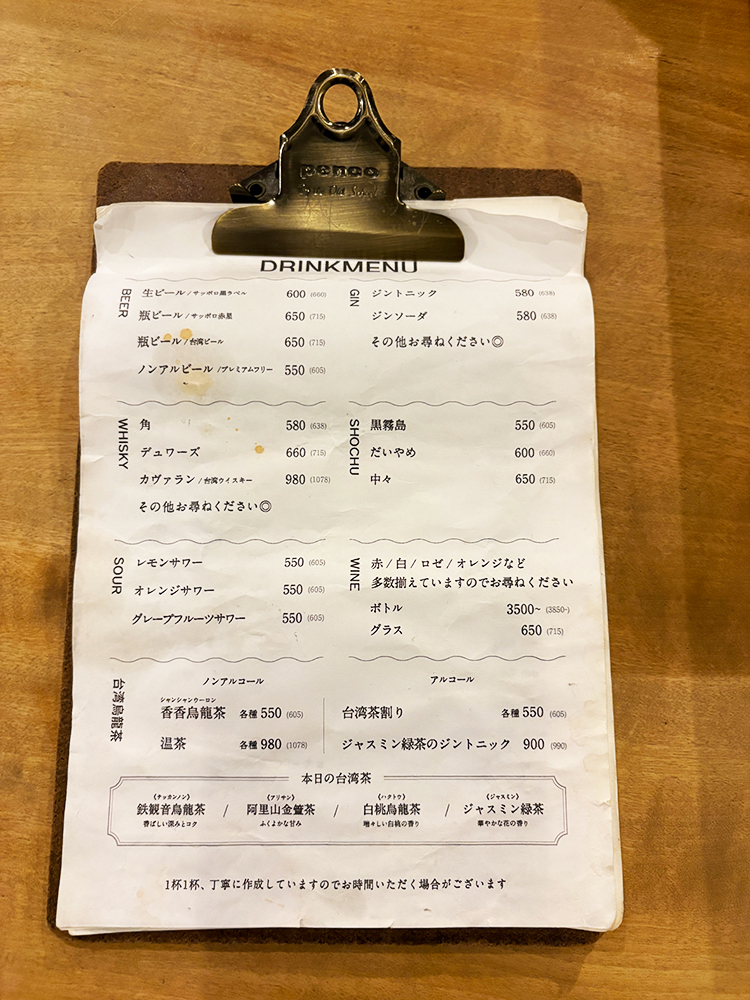 penco
DRINKMENU
BEER
生ビール / サッポロ黒ラベル 600 (660)
瓶ビール / サッポロ赤星 650 (715)
瓶ビール / 台湾ビール 650 (715)
ノンアルビール /プレミアムフリー 550 (605)
GIN
ジントニック 580 (638)
ジンソーダ 580 (638)
その他お尋ねください◎
WHISKY
角 580 (638)
デュワーズ 660 (715)
カヴァラン / 台湾ウイスキー 980 (1078)
その他お尋ねください◎
SHOCHU
黒霧島 550 (605)
だいやめ 600 (660)
中々 650 (715)
SOUR
レモンサワー 550 (605)
オレンジサワー 550 (605)
グレープフルーツサワー 550 (605)
WINE
赤 / 白 / ロゼ / オレンジなど
多数揃えていますのでお尋ねください
ボトル 3500~ (3850~)
グラス 650 (715)
台湾烏龍茶
ノンアルコール
シャンシャンウーロン
香香烏龍茶 各種 550 (605)
温茶 各種 980 (1078)
アルコール
台湾茶割り 各種 550 (605)
ジャスミン緑茶のジントニック 900 (990)
本日の台湾茶
《テッカンノン》 《アリサン》 《ハクトウ》 《ジャスミン》
鉄観音烏龍茶 / 阿里山金萱茶 / 白桃烏龍茶 / ジャスミン緑茶
香ばしい深みとコク ふくよかな甘み 瑞々しい白桃の香り 華やかな花の香り
1杯1杯、丁寧に作成していますのでお時間いただく場合がございます